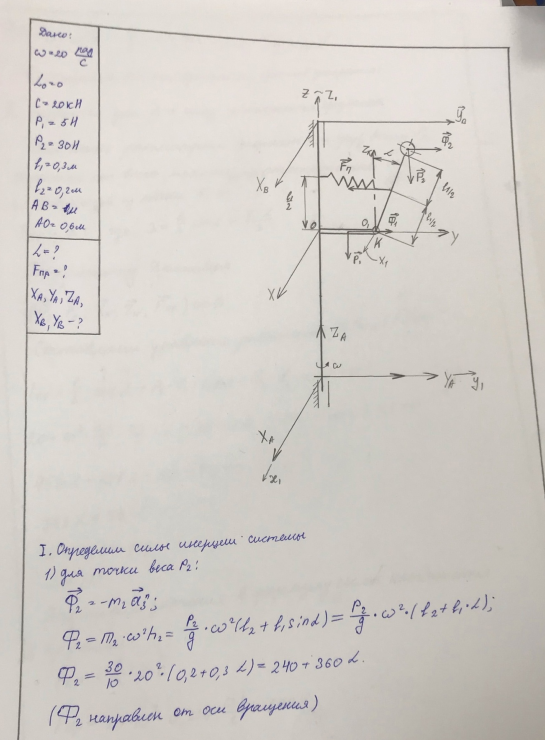 Дано:
ω=20 рад/с
L₀=0
C=20кН
P₁=5Н
P₂=30Н
l₁=0,3м
l₂=0,2м
AB=1м
AO=0,6м
L=?
Fпр=?
XA, YA, ZA,
XB, YB-?
Z-Z₁
Yв
Φ₂
Fп
α
P₂
XB
l₁/2
l₁/2
l₁/2
O
O₁
Φ₁
K
Y
P₁
X₁
X
ZA
ω
YA
y₁
XA
x₁
I. Определим силы инерции системы
1) для точки веса P₂:
Φ₂ = -m₂ a₃ⁿ;
Φ₂ = m₂·ω²h₂ = P₂/g · ω²(l₂ + l₁ sinα) = P₂/g · ω²·(l₂ + l₁·α);
Φ₂ = 30/10 · 20² · (0,2+0,3 α) = 240 + 360 α.
(Φ₂ направлен от оси вращения)